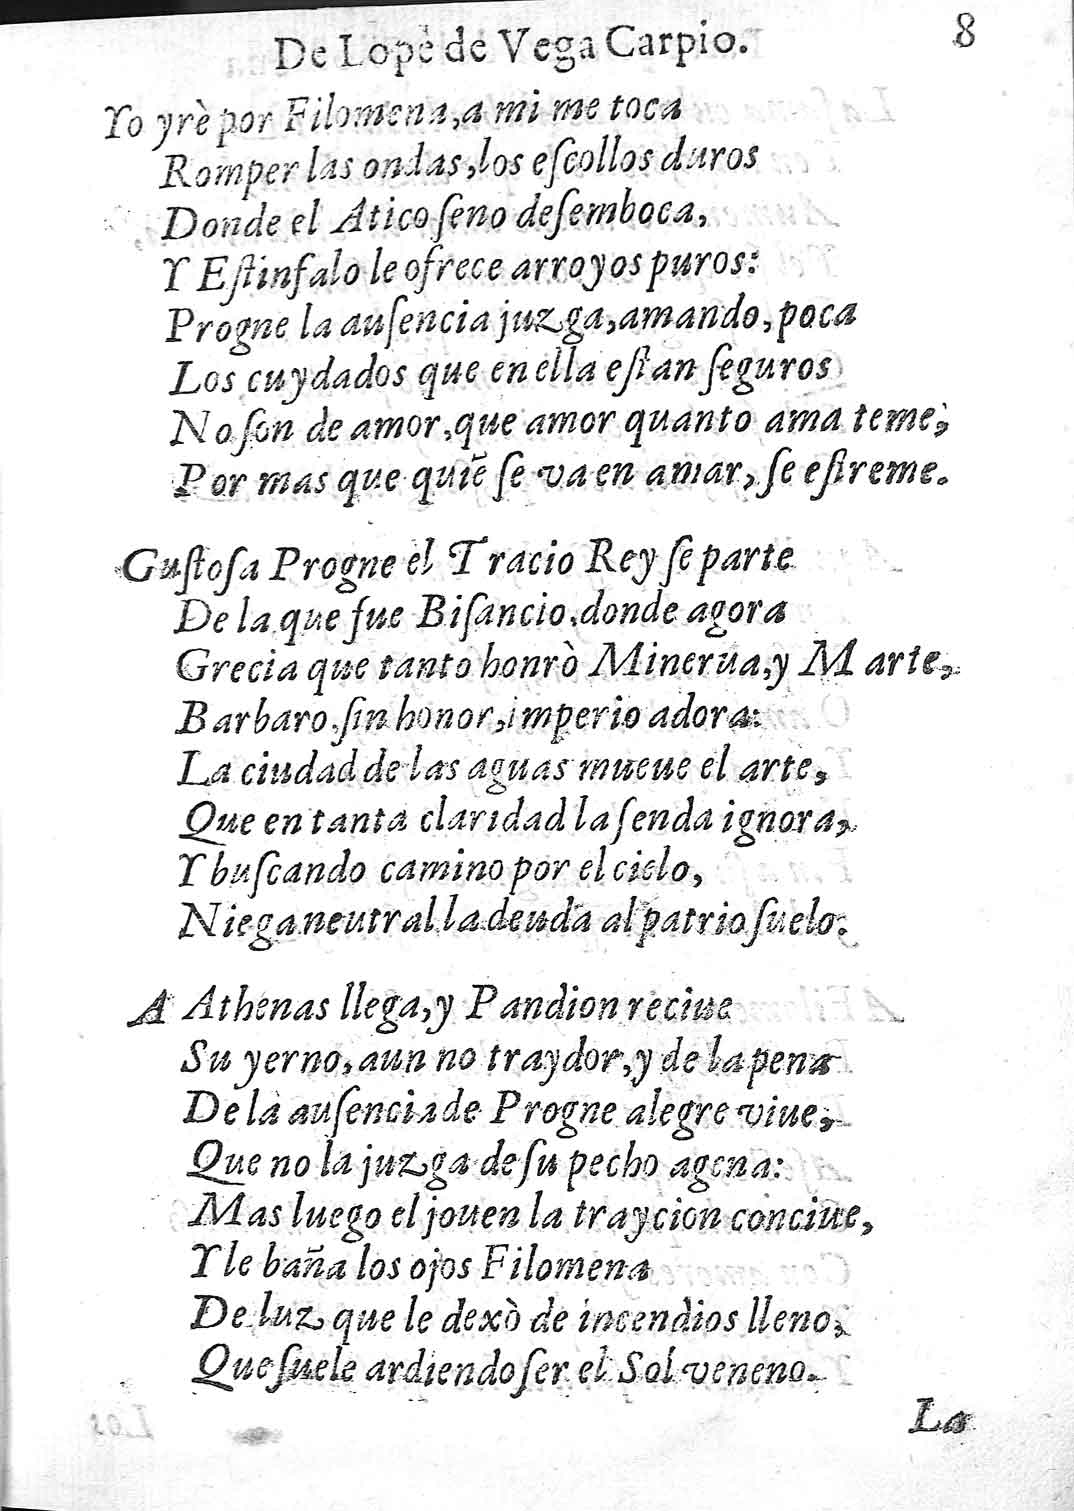 De Lope de Vega Carpio. 8
Yo yrè por Filomena, a mi me toca
Romper las ondas, los eſcollos duros
Donde el Atico ſeno deſemboca,
Y Eſtinfalo le ofrece arroyos puros:
Progne la auſencia juzga, amando, poca
Los cuydados que en ella eſtan ſeguros
No ſon de amor, que amor quanto ama teme,
Por mas que quiẽ ſe va en amar, ſe eſtreme.
Guſtoſa Progne el Tracio Rey ſe parte
De la que fue Biſancio, donde agora
Grecia que tanto honrò Minerua, y Marte,
Barbaro ſin honor, imperio adora:
La ciudad de las aguas mueue el arte,
Que en tanta claridad la ſenda ignora,
Y buſcando camino por el cielo,
Niega neutral la deuda al patrio ſuelo.
A Athenas llega, y Pandion reciue
Su yerno, aun no traydor, y de la pena
De la auſencia de Progne alegre viue,
Que no la juzga de ſu pecho agena:
Mas luego el jouen la traycion conciue,
Y le baña los ojos Filomena
De luz que le dexò de incendios lleno,
Que ſuele ardiendo ſer el Sol veneno.
La